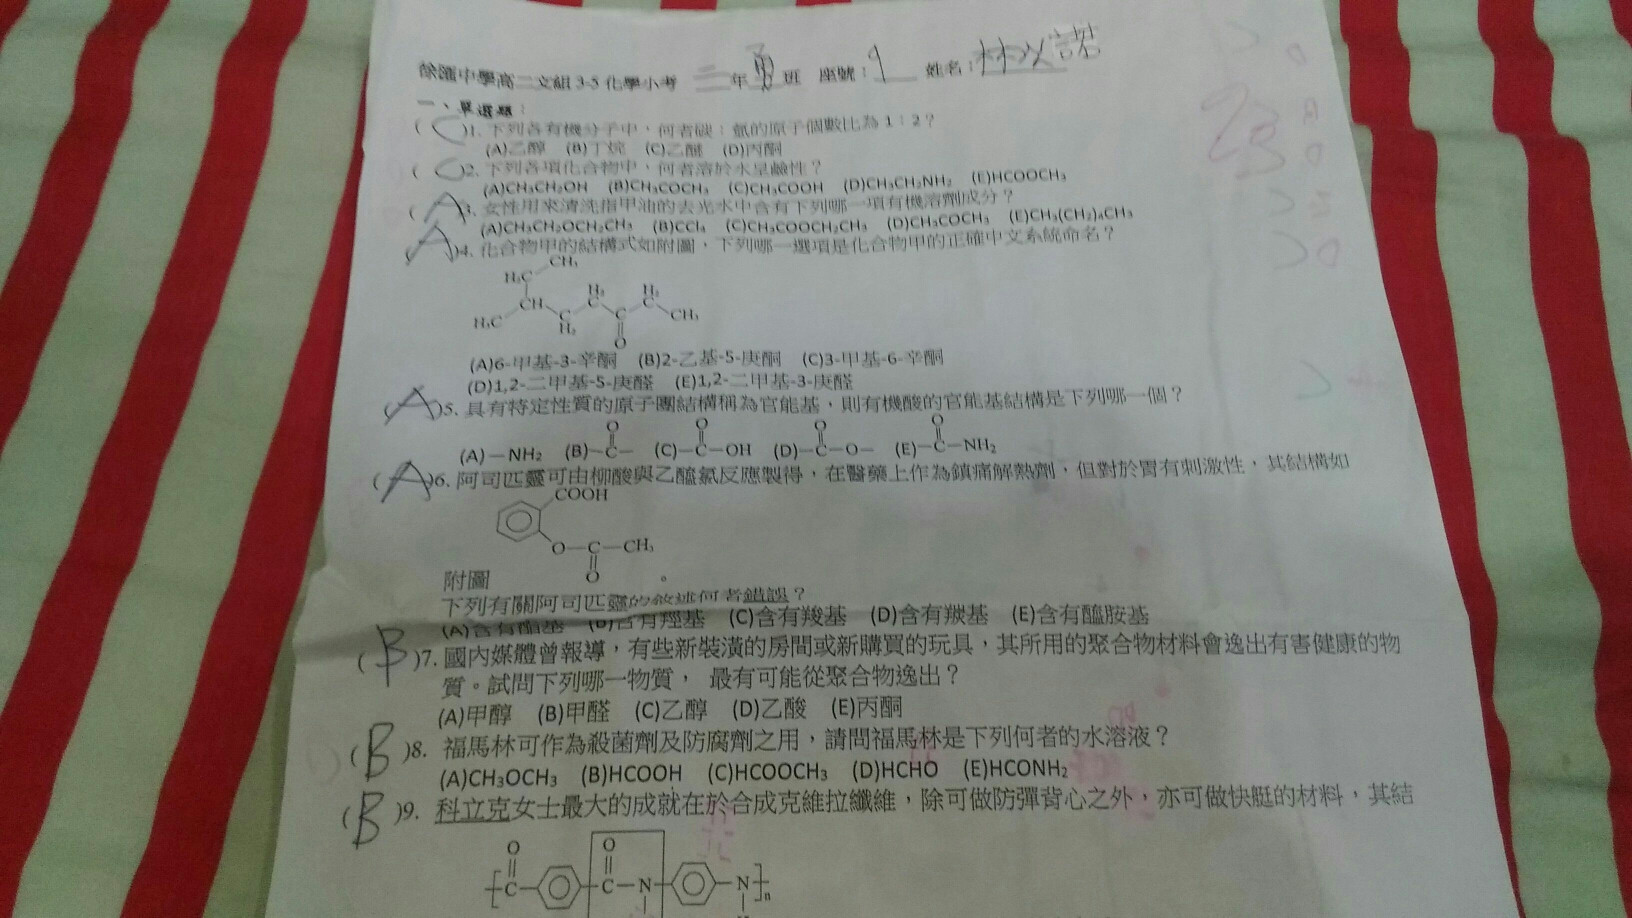 徐匯中學高二文組 3-5 化學小考 二 年 勇 班 座號：9 姓名：林以諾
一、單選題：
( C )1. 下列各有機分子中，何者碳：氫的原子個數比為 1：2？
(A)乙醇 (B)丁烷 (C)乙醚 (D)丙酮
( C )2. 下列各項化合物中，何者溶於水呈鹼性？
(A)CH₃CH₂OH (B)CH₃COCH₃ (C)CH₃COOH (D)CH₃CH₂NH₂ (E)HCOOCH₃
( A )3. 女性用來清洗指甲油的去光水中含有下列哪一項有機溶劑成分？
(A)CH₃CH₂OCH₂CH₃ (B)CCl₄ (C)CH₃COOCH₂CH₃ (D)CH₃COCH₃ (E)CH₃(CH₂)₄CH₃
( A )4. 化合物甲的結構式如附圖，下列哪一選項是化合物甲的正確中文系統命名？
CH₃
H₂C
CH H₂C H₂C
H₃C C H₂ C CH₃
O
(A)6-甲基-3-辛酮 (B)2-乙基-5-庚酮 (C)3-甲基-6-辛酮
(D)1,2-二甲基-5-庚醛 (E)1,2-二甲基-3-庚醛
( A )5. 具有特定性質的原子團結構稱為官能基，則有機酸的官能基結構是下列哪一個？
O O O O
(A)—NH₂ (B)—C— (C)—C—OH (D)—C—O— (E)—C—NH₂
( A )6. 阿司匹靈可由柳酸與乙醯氯反應製得，在醫藥上作為鎮痛解熱劑，但對於胃有刺激性，其結構如
COOH
O—C—CH₃
附圖 O 。
下列有關阿司匹靈的敘述何者錯誤？
(A)含有酯基 (B)含有羥基 (C)含有羧基 (D)含有羰基 (E)含有醯胺基
( B )7. 國內媒體曾報導，有些新裝潢的房間或新購買的玩具，其所用的聚合物材料會逸出有害健康的物
質。試問下列哪一物質， 最有可能從聚合物逸出？
(A)甲醇 (B)甲醛 (C)乙醇 (D)乙酸 (E)丙酮
( B )8. 福馬林可作為殺菌劑及防腐劑之用，請問福馬林是下列何者的水溶液？
(A)CH₃OCH₃ (B)HCOOH (C)HCOOCH₃ (D)HCHO (E)HCONH₂
( B )9. 科立克女士最大的成就在於合成克維拉纖維，除可做防彈背心之外，亦可做快艇的材料，其結
O O
C C—N N n